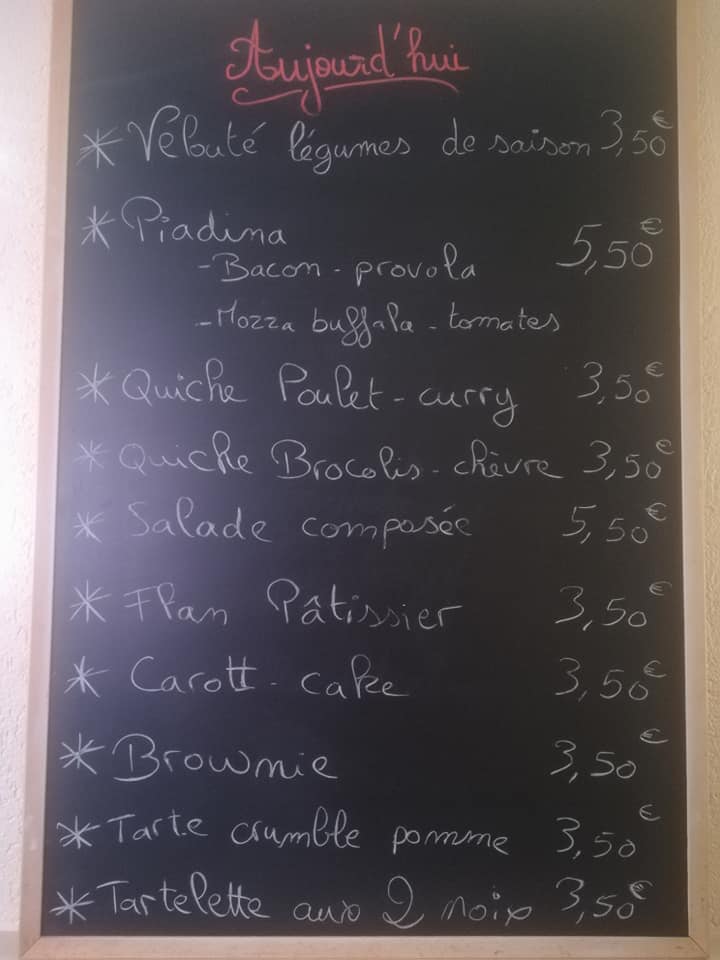 Aujourd'hui
* Velouté légumes de saison 3,50€
* Piadina 5,50€
- Bacon - provola
- Mozza buffala - tomates
* Quiche Poulet - curry 3,50€
* Quiche Brocolis - chèvre 3,50€
* Salade composée 5,50€
* Flan Pâtissier 3,50€
* Carott - cake 3,50€
* Brownie 3,50€
* Tarte crumble pomme 3,50€
* Tartelette aux 2 noix 3,50€